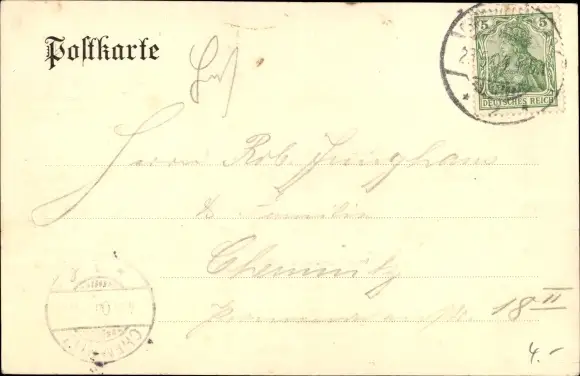 Postkarte
5 5
DEUTSCHES REICH
Herrn Rob. Junghans
& Familie
Chemnitz
18 II
4.-